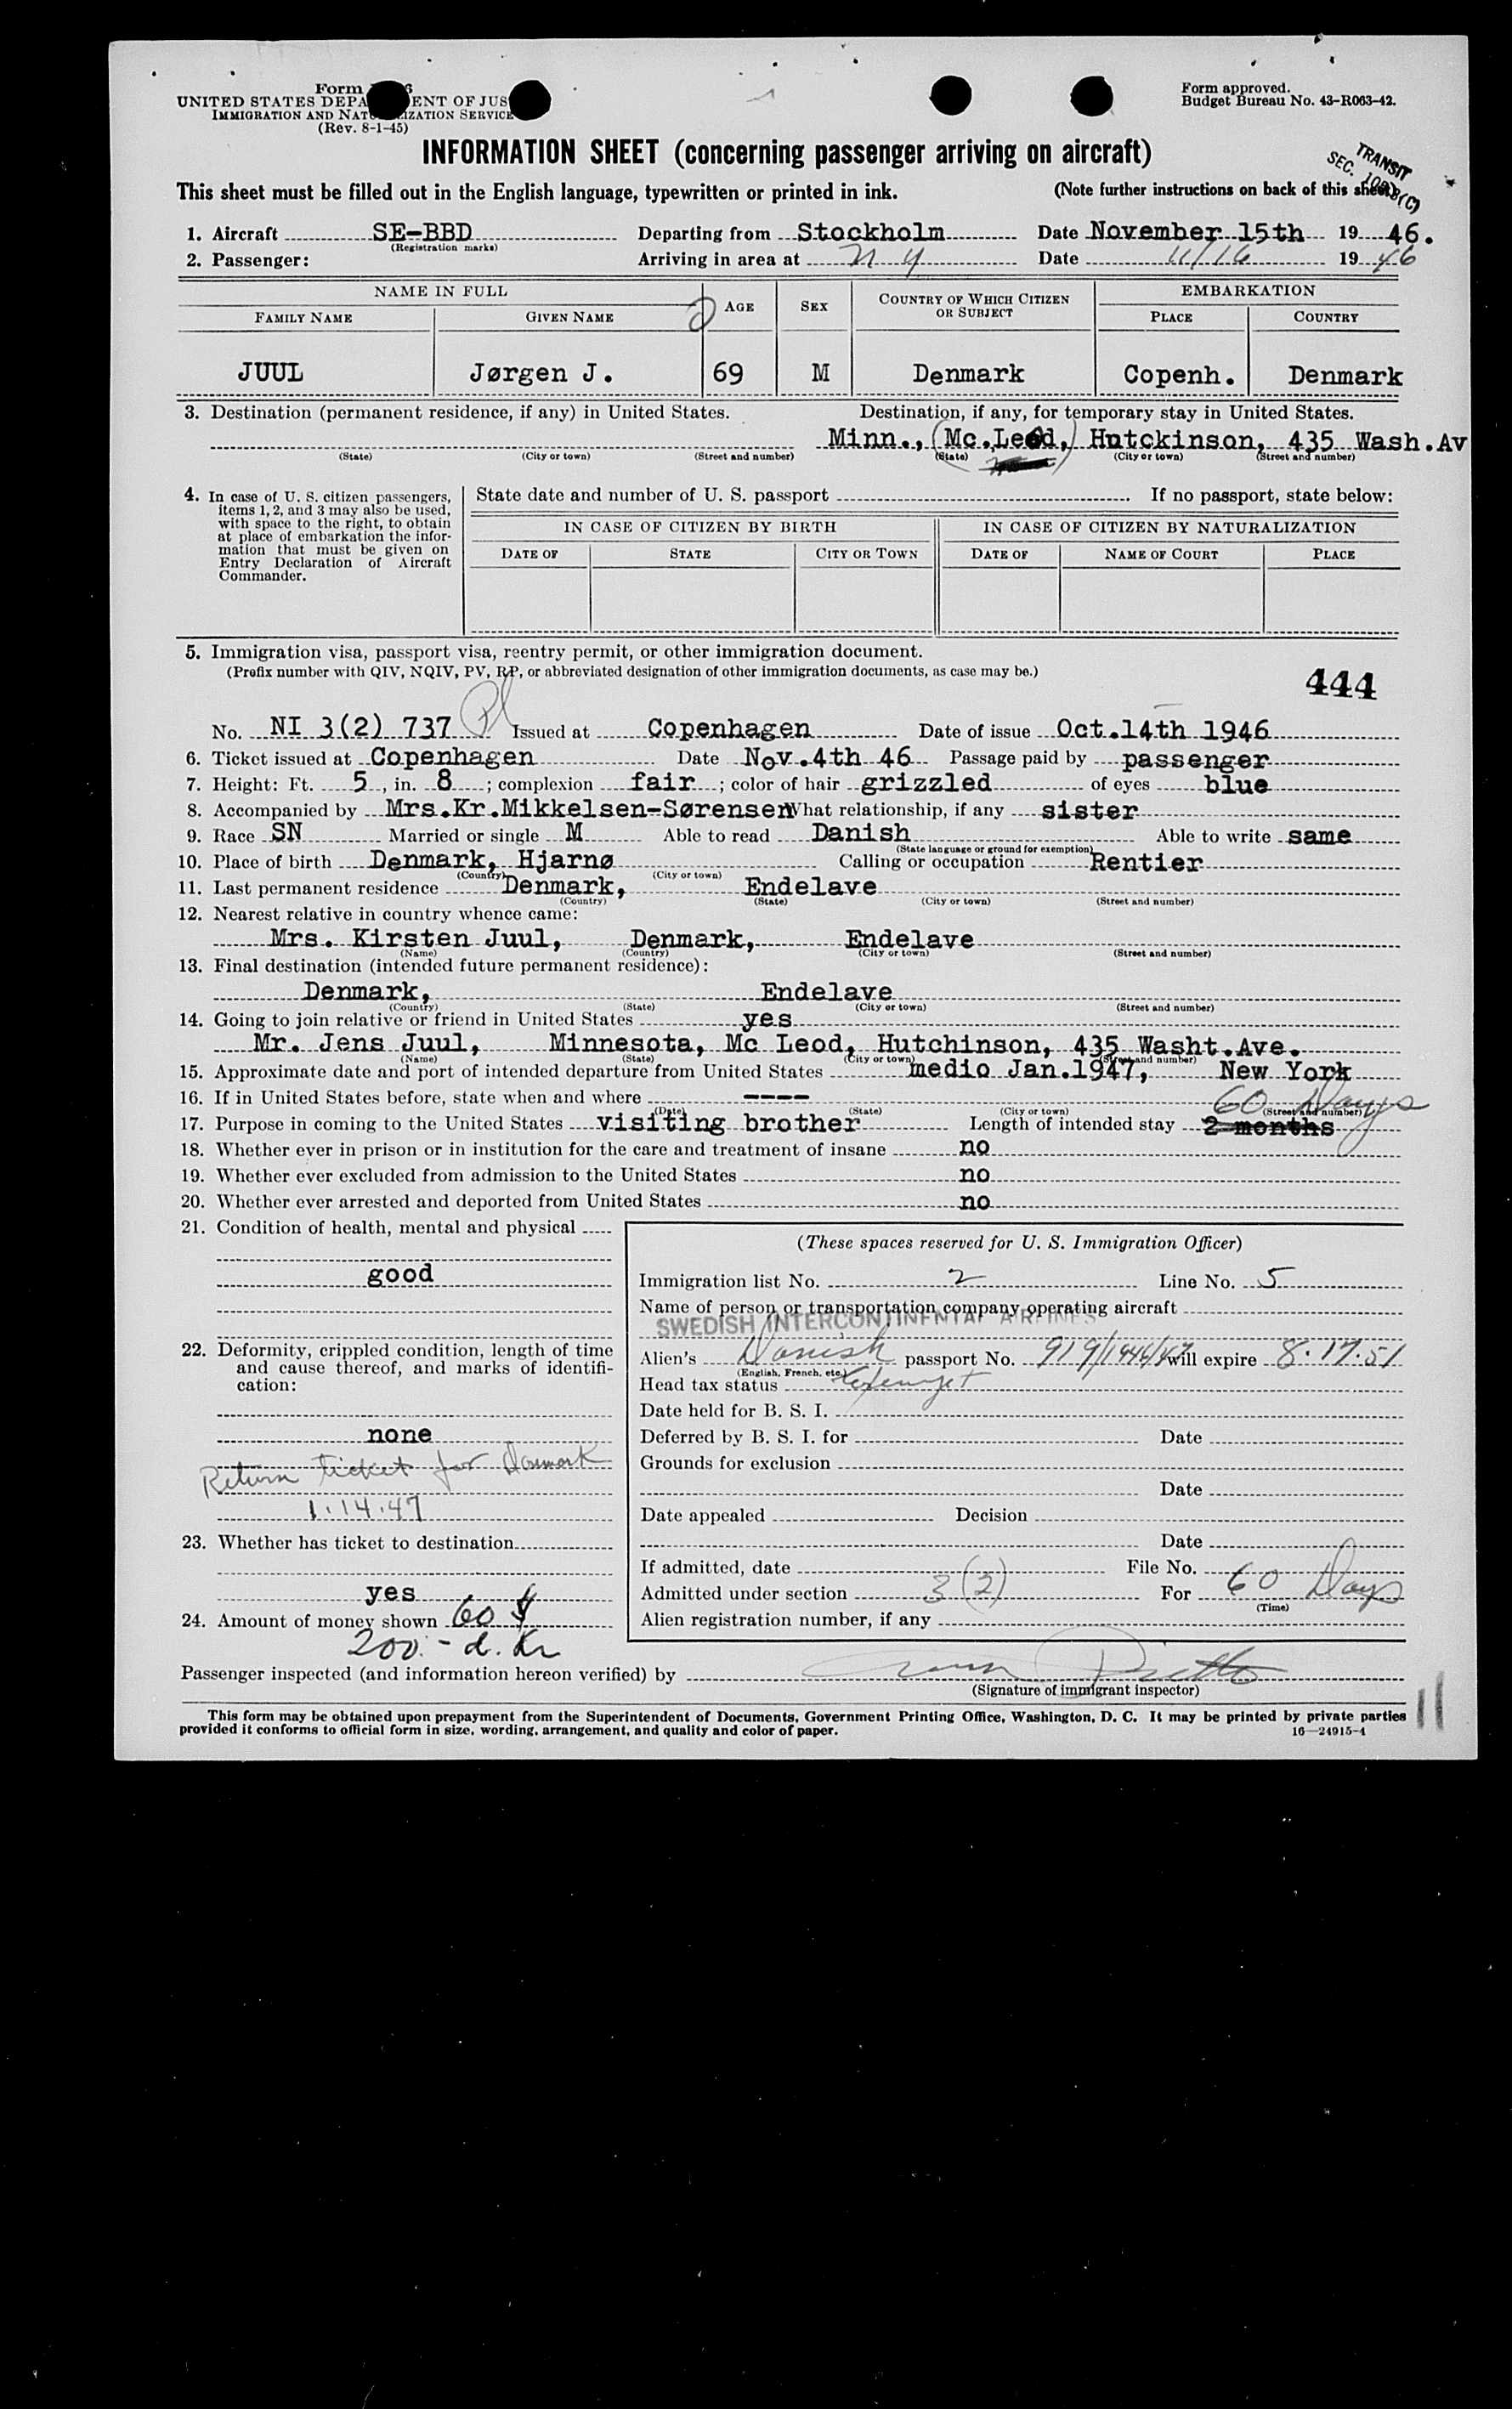 Form
UNITED STATES DEPA ENT OF JUS
IMMIGRATION AND NAT IZATION SERVICE
(Rev. 8-1-45)
Form approved.
Budget Bureau No. 43-R063-42.
INFORMATION SHEET (concerning passenger arriving on aircraft)
TRANSIT
SEC.
This sheet must be filled out in the English language, typewritten or printed in ink. (Note further instructions on back of this sheet)
1. Aircraft SE-BBD Departing from Stockholm Date November 15th 19 46.
(Registration marks)
2. Passenger: Arriving in area at N Y Date 11/16 19 46
NAME IN FULL AGE SEX COUNTRY OF WHICH CITIZEN OR SUBJECT EMBARKATION
FAMILY NAME GIVEN NAME PLACE COUNTRY
JUUL Jørgen J. 69 M Denmark Copenh. Denmark
3. Destination (permanent residence, if any) in United States. Destination, if any, for temporary stay in United States.
Minn., (Mc.Leod,) Hutckinson, 435 Wash.Av
(State) (City or town) (Street and number) (State) (City or town) (Street and number)
4. In case of U. S. citizen passengers, items 1, 2, and 3 may also be used, with space to the right, to obtain at place of embarkation the information that must be given on Entry Declaration of Aircraft Commander.
State date and number of U. S. passport If no passport, state below:
IN CASE OF CITIZEN BY BIRTH IN CASE OF CITIZEN BY NATURALIZATION
DATE OF STATE CITY OR TOWN DATE OF NAME OF COURT PLACE
5. Immigration visa, passport visa, reentry permit, or other immigration document.
(Prefix number with QIV, NQIV, PV, RP, or abbreviated designation of other immigration documents, as case may be.)
444
No. NI 3(2) 737 Issued at Copenhagen Date of issue Oct.14th 1946
6. Ticket issued at Copenhagen Date Nov.4th 46 Passage paid by passenger
7. Height: Ft. 5, in. 8; complexion fair; color of hair grizzled of eyes blue
8. Accompanied by Mrs.Kr.Mikkelsen-Sørensen What relationship, if any sister
9. Race SN Married or single M Able to read Danish Able to write same
(State language or ground for exemption)
10. Place of birth Denmark, Hjarnø Calling or occupation Rentier
(Country) (City or town)
11. Last permanent residence Denmark, Endelave
(Country) (State) (City or town) (Street and number)
12. Nearest relative in country whence came:
Mrs. Kirsten Juul, Denmark, Endelave
(Name) (Country) (City or town) (Street and number)
13. Final destination (intended future permanent residence):
Denmark, Endelave
(Country) (State) (City or town) (Street and number)
14. Going to join relative or friend in United States yes
Mr. Jens Juul, Minnesota, Mc Leod, Hutchinson, 435 Washt.Ave.
(Name) (State) (City or town) (Street and number)
15. Approximate date and port of intended departure from United States medio Jan.1947, New York
16. If in United States before, state when and where ----
(Date) (State) (City or town) (Street and number)
60 Days
17. Purpose in coming to the United States visiting brother Length of intended stay 2 months
18. Whether ever in prison or in institution for the care and treatment of insane no
19. Whether ever excluded from admission to the United States no
20. Whether ever arrested and deported from United States no
21. Condition of health, mental and physical
good
22. Deformity, crippled condition, length of time and cause thereof, and marks of identification:
none
Return ticket for Denmark
1.14.47
23. Whether has ticket to destination
yes
24. Amount of money shown 60 $
200.- d. Kr
(These spaces reserved for U. S. Immigration Officer)
Immigration list No. 2 Line No. 5
Name of person or transportation company operating aircraft
SWEDISH INTERCONTINENTAL AIRLINES
Alien's Danish passport No. 919/1946/47 will expire 8.17.51
(English, French, etc.)
Head tax status Exempt
Date held for B. S. I.
Deferred by B. S. I. for Date
Grounds for exclusion
Date
Date appealed Decision
Date
If admitted, date File No.
Admitted under section 3(2) For 60 Days
(Time)
Alien registration number, if any
Passenger inspected (and information hereon verified) by
(Signature of immigrant inspector)
This form may be obtained upon prepayment from the Superintendent of Documents, Government Printing Office, Washington, D. C. It may be printed by private parties
provided it conforms to official form in size, wording, arrangement, and quality and color of paper.
16—24915-4
11